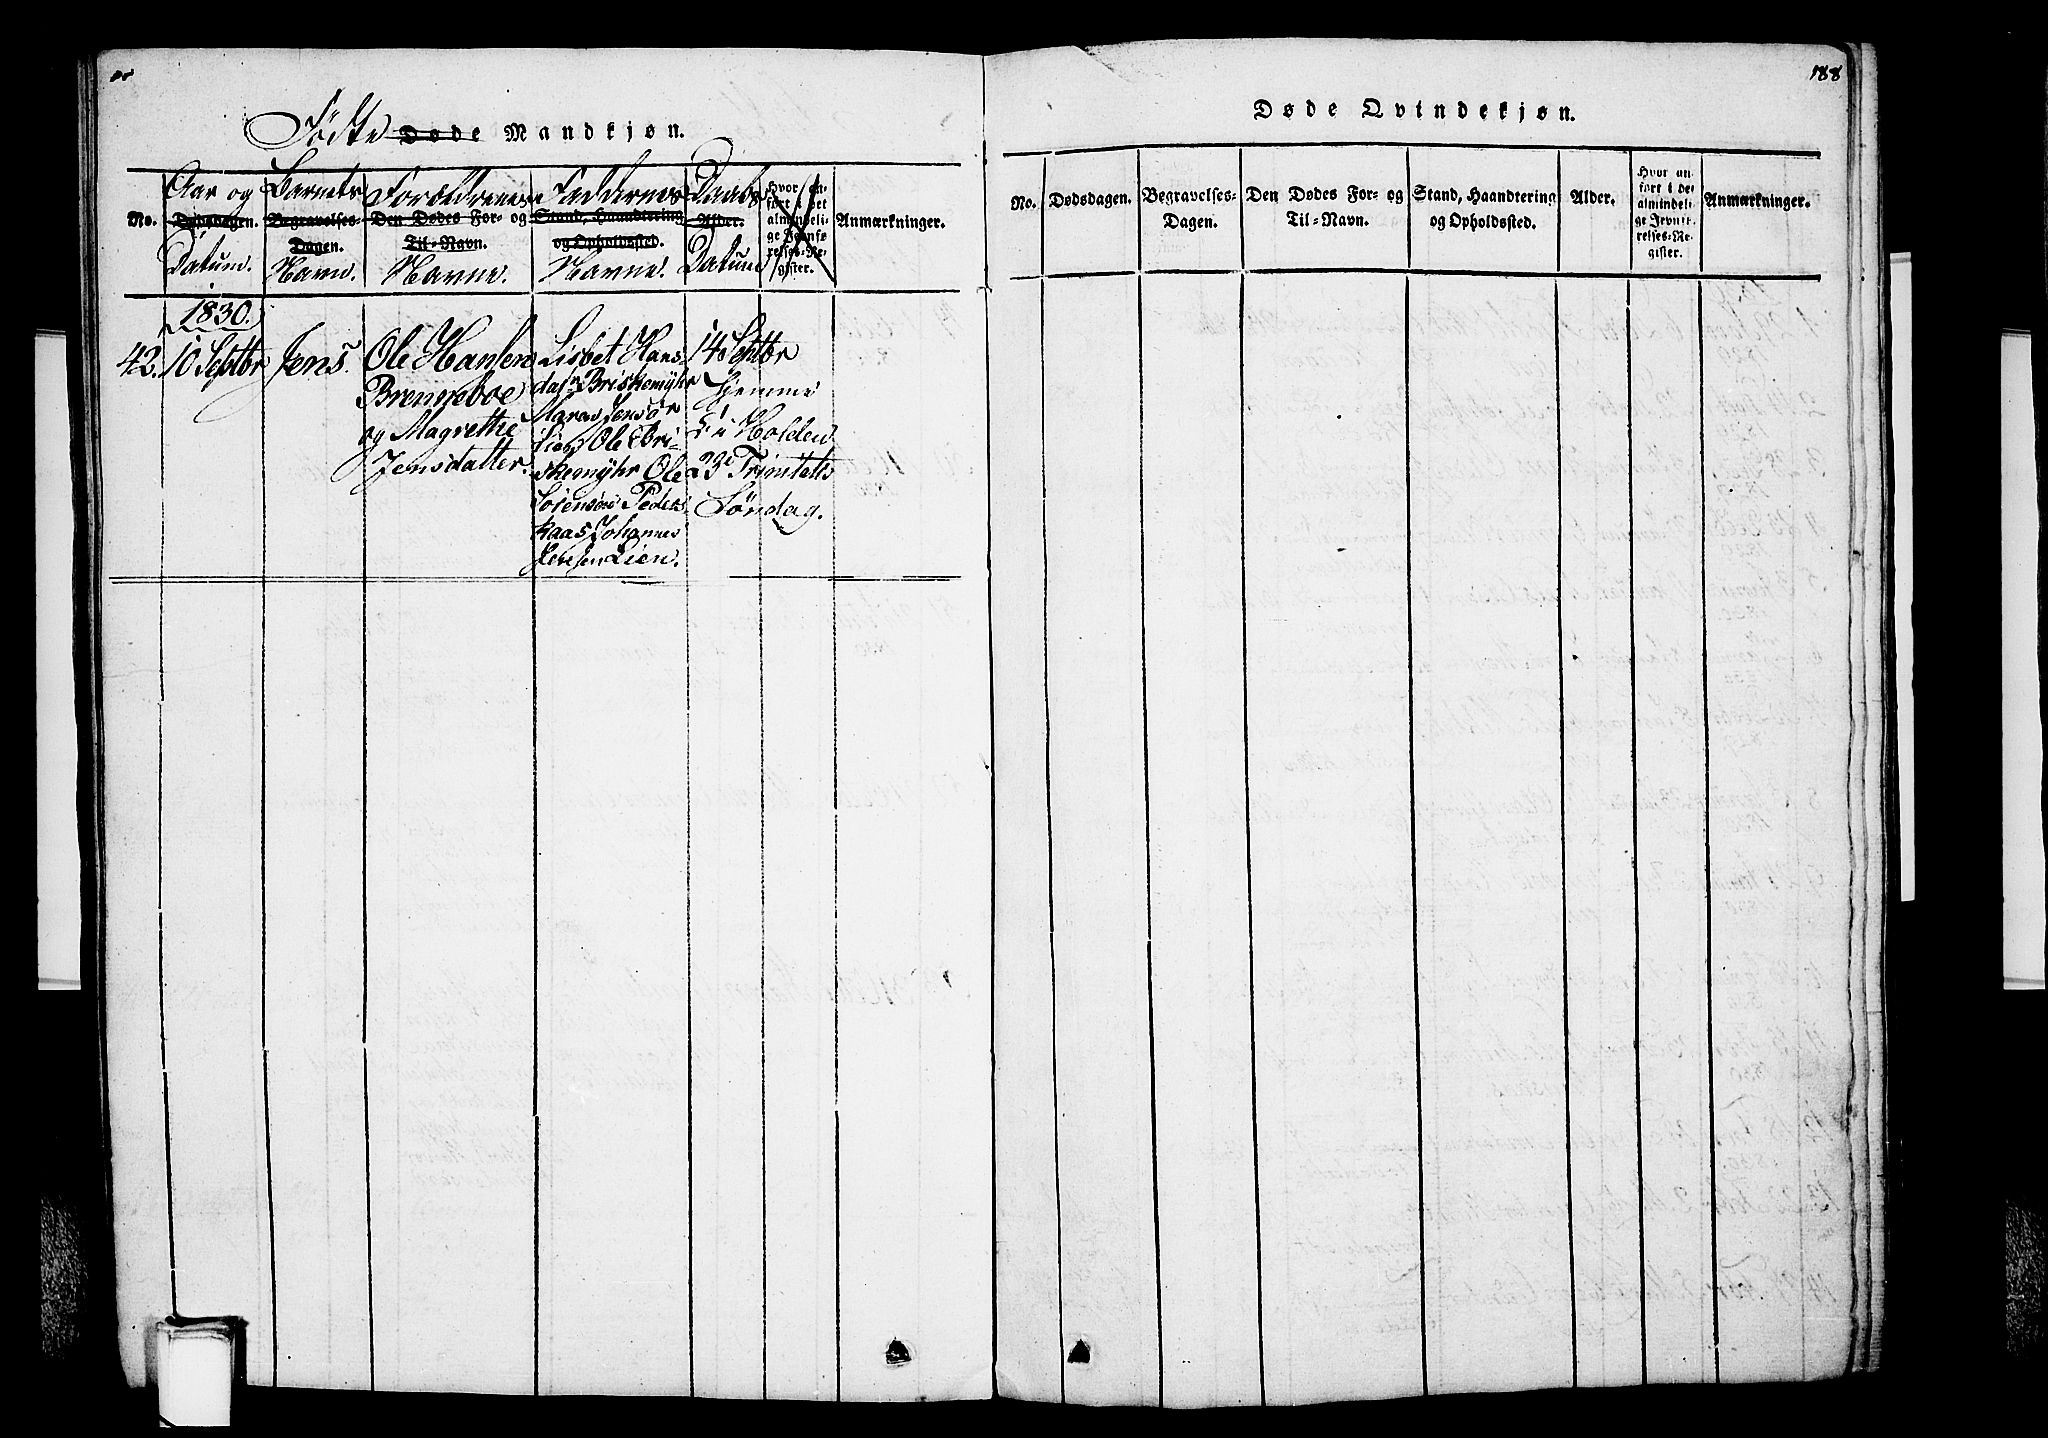 188
Fødte Døde Mandkjøn.
No.
Aar og
Dødsdagen.
Datum.
Barnets
Begravelses-
Dagen.
Navn.
Forældrenes
Den Dødes For- og
Til-Navn.
Navne.
Faddernes
Stand, Haandtering
og Opholdssted.
Navne.
Daabs
Alder.
Datum
Hvor an-
ført i det
almindeli-
ge Jevnfø-
relses-Re-
gister.
Anmærkninger.
1830.
42. 10 Septbr
Jens.
Ole Hansen
Brenneboe
og Magrethe
Jensdatter.
Lisbet Hans-
datr Briskemyhr
Maren Jensdr
Lien Ole Bri-
skemyhr Ole
Sørensen Peders
kaas Johannes
Jensen Lien.
14 Septbr
hjemme
i Holden
23e Trinitatis
Søndag.
Døde Qvindekjøn.
No.
Dødsdagen.
Begravelses-
Dagen.
Den Dødes For- og
Til-Navn.
Stand, Haandtering
og Opholdssted.
Alder.
Hvor an-
ført i det
almindeli-
ge Jevnfø-
relses-Re-
gister.
Anmærkninger.